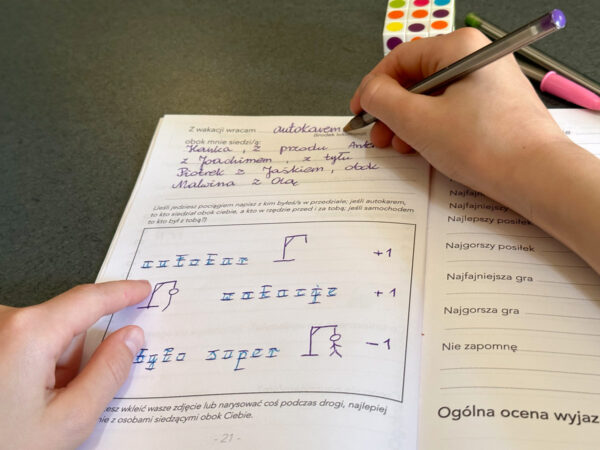 Z wakacji wracam autokarem
(środek
obok mnie siedzi/ą:
Hanka, z przodu
z Joachimem, z tyłu
Piotrek z Jaśkiem, obok
Malwina z Olą
(Jeśli jedziesz pociągiem napisz z kim byłeś/a w przedziale; jeśli autokarem,
to kto siedział obok ciebie, a kto w rzędzie przed i za tobą; jeśli samochodem
to kto był z tobą?)
+1
+1
było super -1
wkleić wasze zdjęcie lub narysować coś podczas drogi, najlepiej
z osobami siedzącymi obok Ciebie.
- 21 -
Najfajn
Najfajniejsz
Najlepszy posiłek
Najgorszy posiłek
Najfajniejsza gra
Najgorsza gra
Nie zapomnę
Ogólna ocena wyjaz